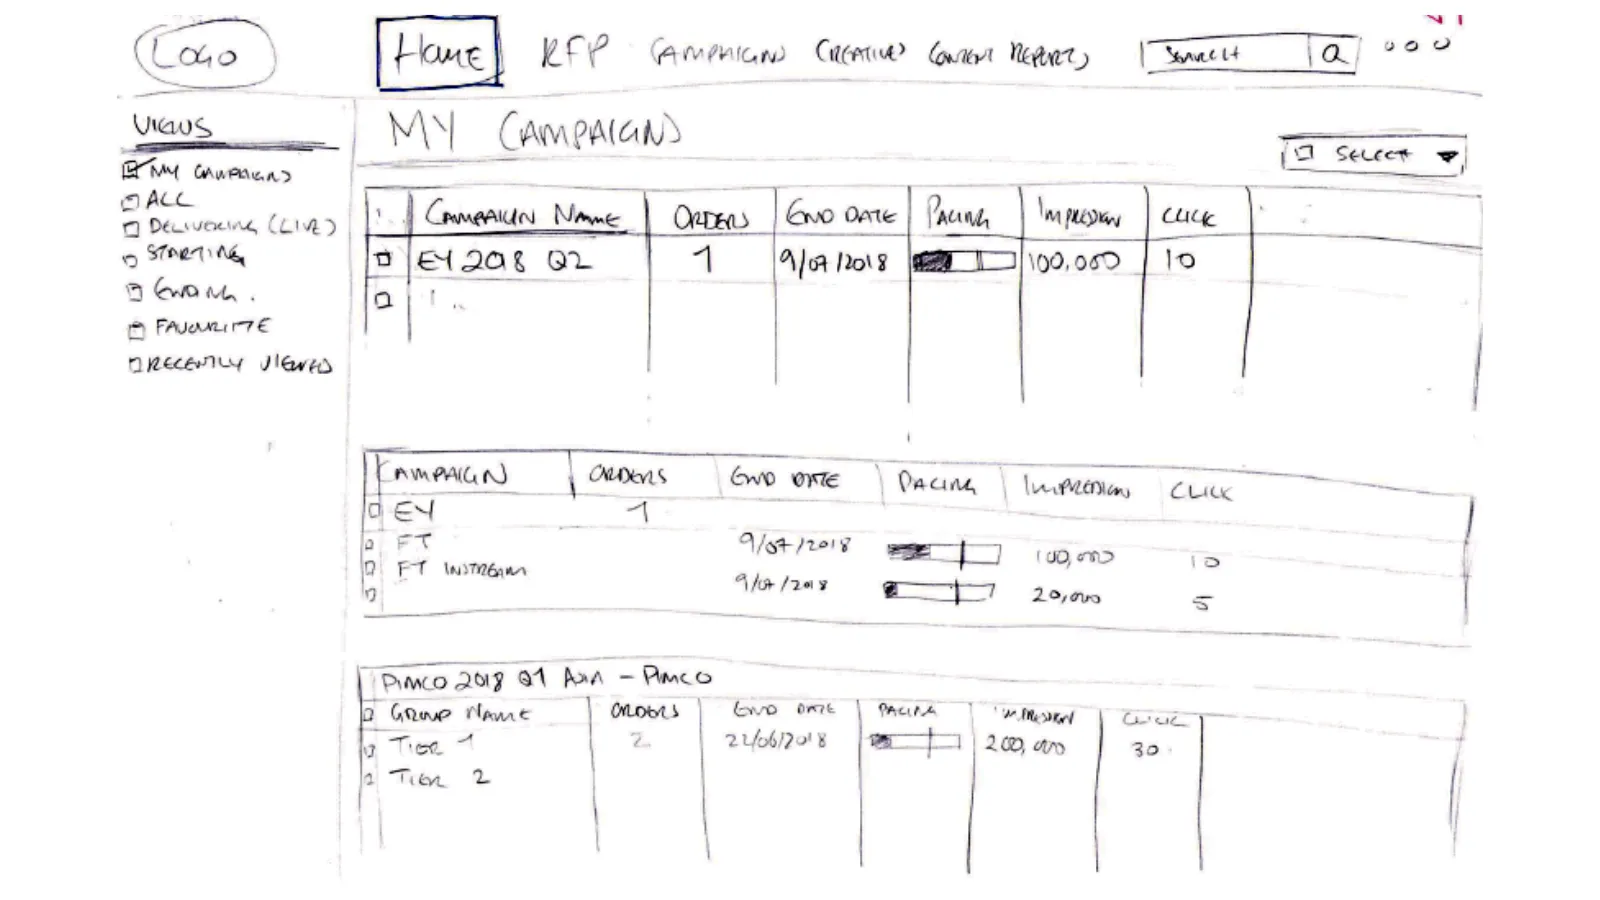 LOGO
HOME RFP CAMPAIGNS CREATIVES CONTENT REPORTS SEARCH
VIEWS
MY CAMPAIGNS
ALL
DELIVERING (LIVE)
STARTING
ENDING.
FAVOURITE
RECENTLY VIEWED
MY CAMPAIGNS
SELECT
CAMPAIGN NAME ORDERS END DATE PACING IMPRESSION CLICK
EY 2018 Q2 1 9/07/2018 100,000 10
CAMPAIGN ORDERS END DATE PACING IMPRESSION CLICK
EY 1
FT 9/07/2018 100,000 10
FT INSTREAM 9/07/2018 20,000 5
PIMCO 2018 Q1 - PIMCO
GROUP NAME ORDERS END DATE PACING IMPRESSION CLICK
TIER 1 2 22/06/2018 200,000 30
TIER 2